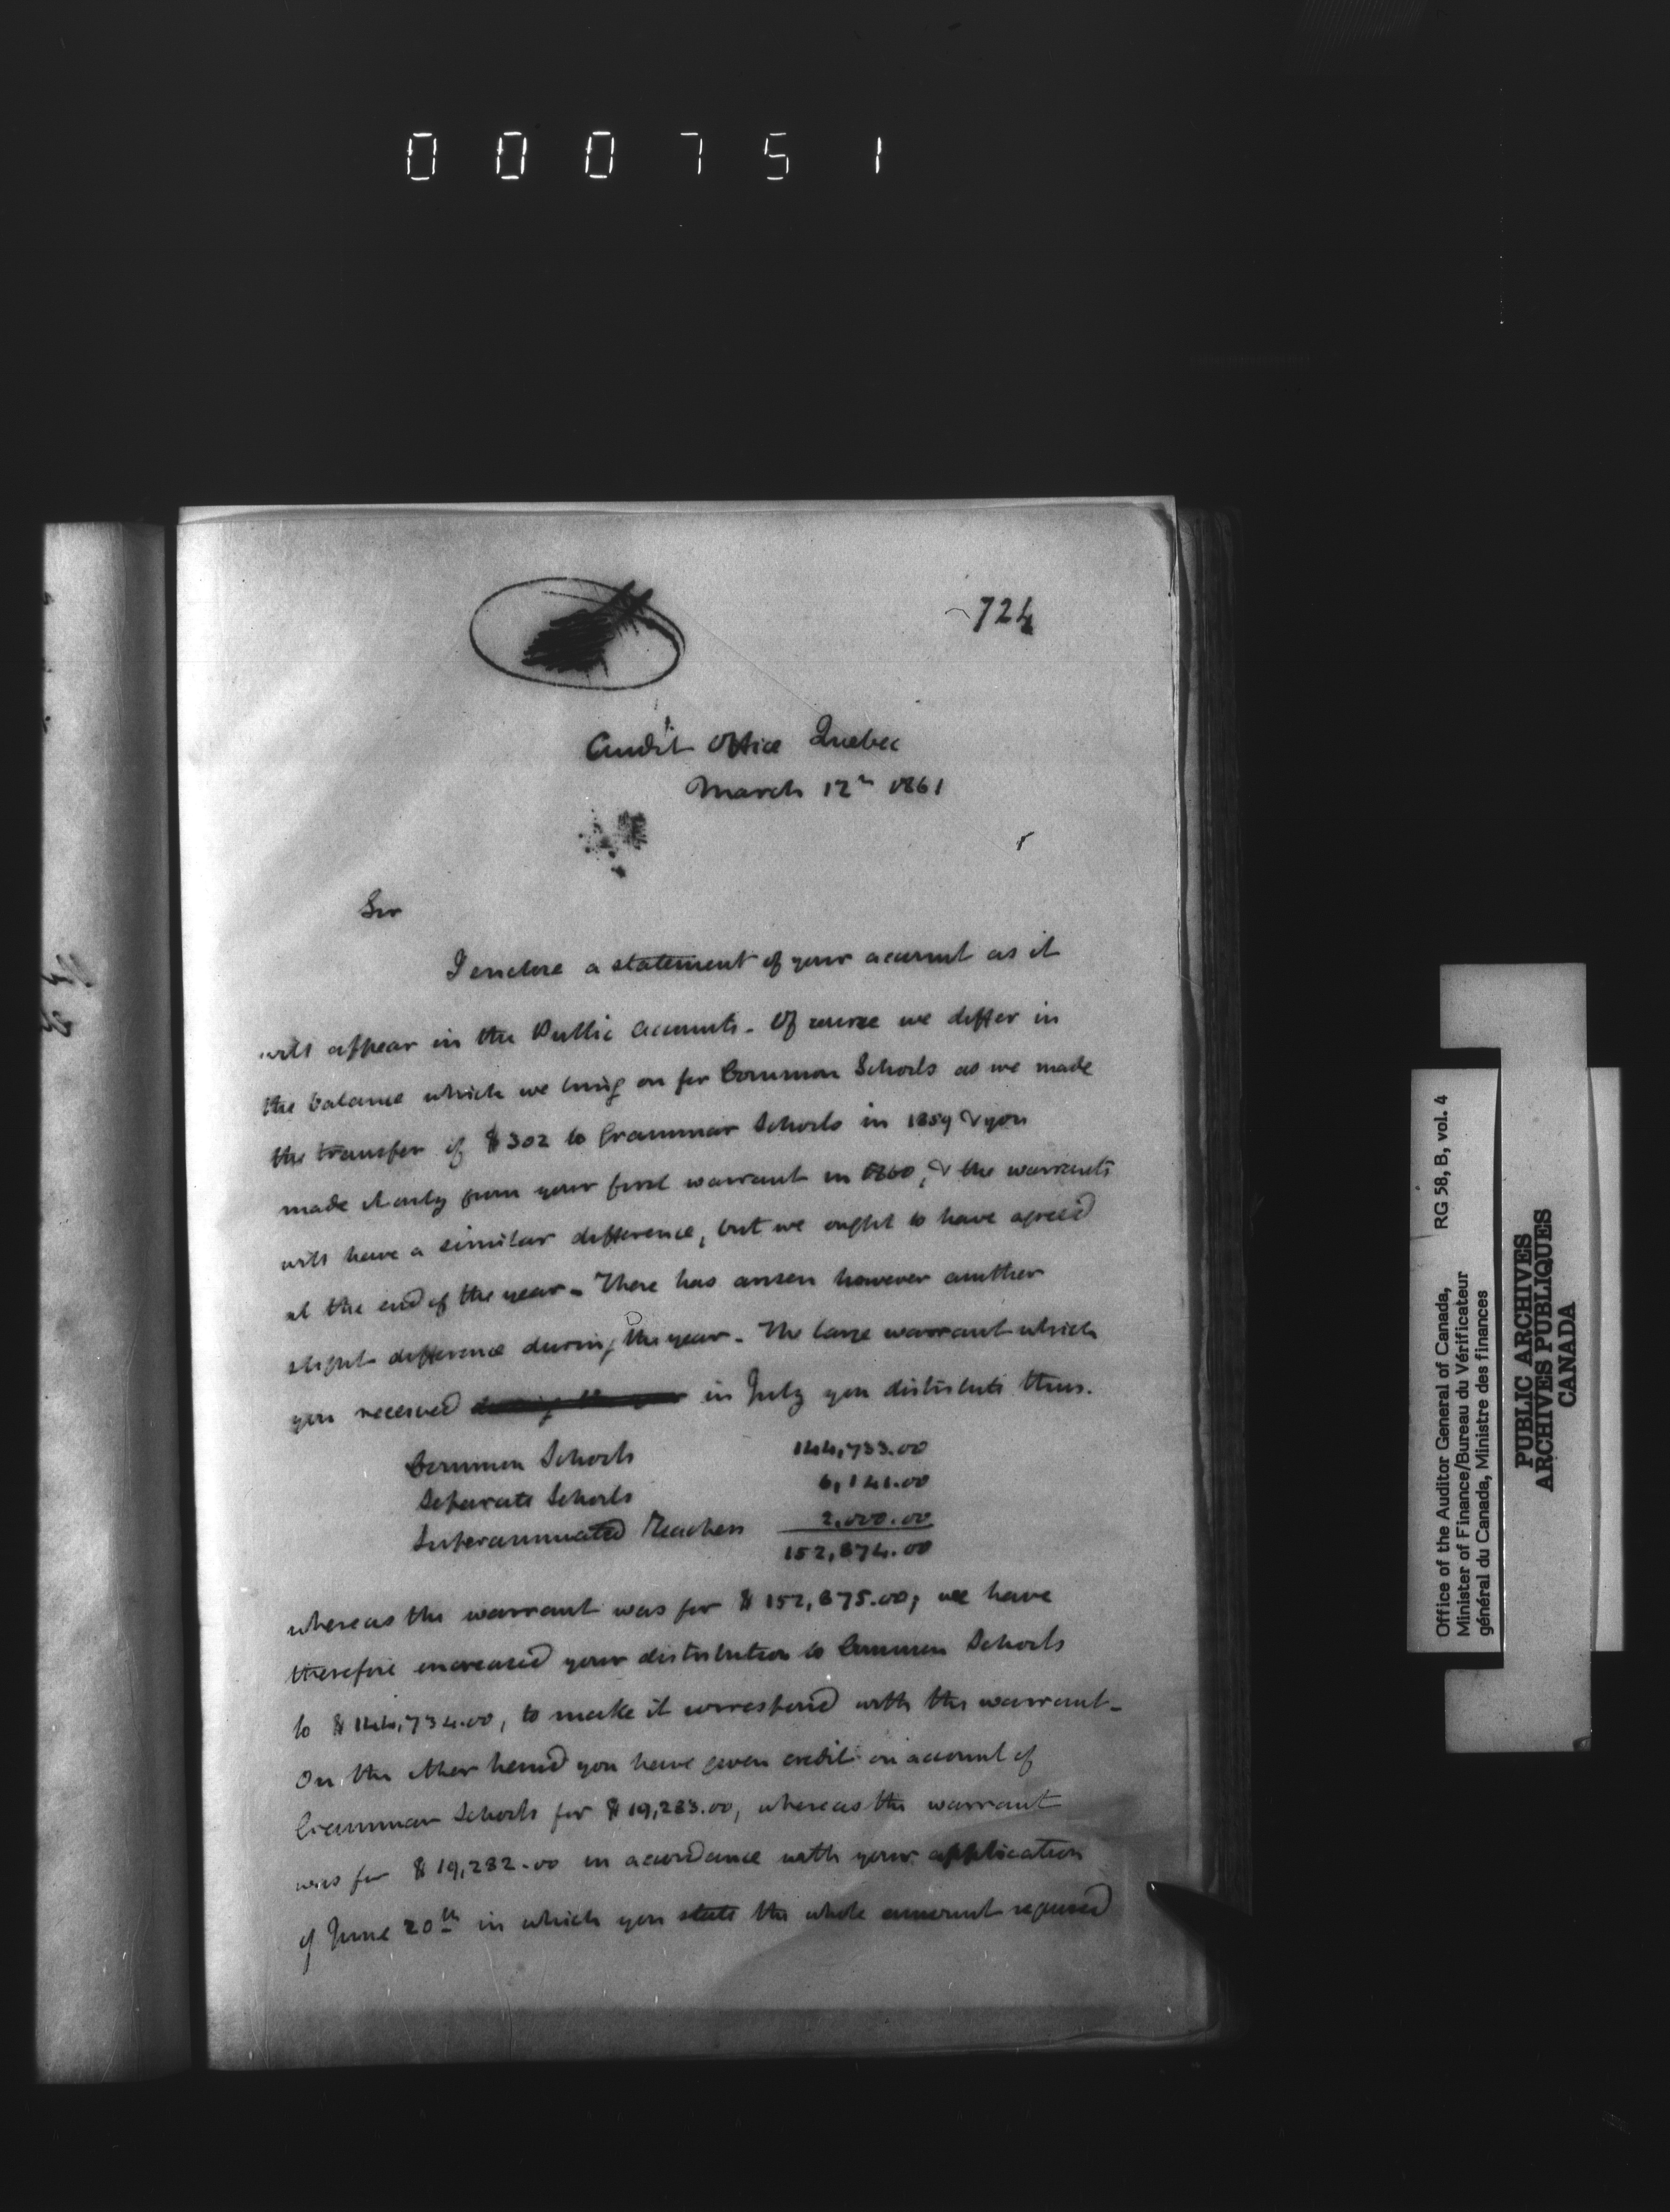 000751
724
Audit Office Quebec
March 12th 1861
Sir
I enclose a statement of your account as it
will appear in the Public Accounts. Of course we differ in
the balance which we bring on for Common Schools as we made
the transfer of $302 to Grammar Schools in 1859 & you
made it only from your first warrant in 1860, & the warrants
will have a similar difference, but we ought to have agreed
at the end of the year. There has arisen however another
slight difference during the year. The large warrant which
you received during the year in July you distribute thus.
Common Schools 144,733.00
Separate Schools 6,141.00
Superannuated Teachers 2,000.00
152,874.00
whereas the warrant was for $152,875.00; we have
therefore increased your distribution to Common Schools
to $144,734.00, to make it correspond with the warrant.
On the other hand you have given credit on account of
Grammar Schools for $19,283.00, whereas the warrant
was for $19,282.00 in accordance with your application
of June 20th in which you state the whole amount required
Office of the Auditor General of Canada, RG 58, B, vol. 4
Minister of Finance/Bureau du Vérificateur
général du Canada, Ministre des finances
PUBLIC ARCHIVES
ARCHIVES PUBLIQUES
CANADA